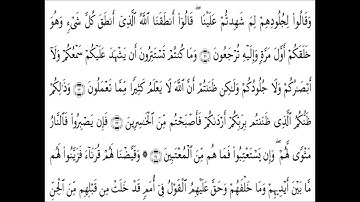 وَقَالُوا۟ لِجُلُودِهِمْ لِمَ شَهِدتُّمْ عَلَيْنَا ۖ قَالُوٓا۟ أَنطَقَنَا ٱللَّهُ ٱلَّذِىٓ أَنطَقَ كُلَّ شَىْءٍ وَهُوَ
خَلَقَكُمْ أَوَّلَ مَرَّةٍ وَإِلَيْهِ تُرْجَعُونَ ۝ وَمَا كُنتُمْ تَسْتَتِرُونَ أَن يَشْهَدَ عَلَيْكُمْ سَمْعُكُمْ وَلَآ
أَبْصَٰرُكُمْ وَلَا جُلُودُكُمْ وَلَٰكِن ظَنَنتُمْ أَنَّ ٱللَّهَ لَا يَعْلَمُ كَثِيرًا مِّمَّا تَعْمَلُونَ ۝ وَذَٰلِكُمْ
ظَنُّكُمُ ٱلَّذِى ظَنَنتُم بِرَبِّكُمْ أَرْدَىٰكُمْ فَأَصْبَحْتُم مِّنَ ٱلْخَٰسِرِينَ ۝ فَإِن يَصْبِرُوا۟ فَٱلنَّارُ
مَثْوًى لَّهُمْ ۖ وَإِن يَسْتَعْتِبُوا۟ فَمَا هُم مِّنَ ٱلْمُعْتَبِينَ ۝ ۞ وَقَيَّضْنَا لَهُمْ قُرَنَآءَ فَزَيَّنُوا۟ لَهُم
مَّا بَيْنَ أَيْدِيهِمْ وَمَا خَلْفَهُمْ وَحَقَّ عَلَيْهِمُ ٱلْقَوْلُ فِىٓ أُمَمٍ قَدْ خَلَتْ مِن قَبْلِهِم مِّنَ ٱلْجِنِّ